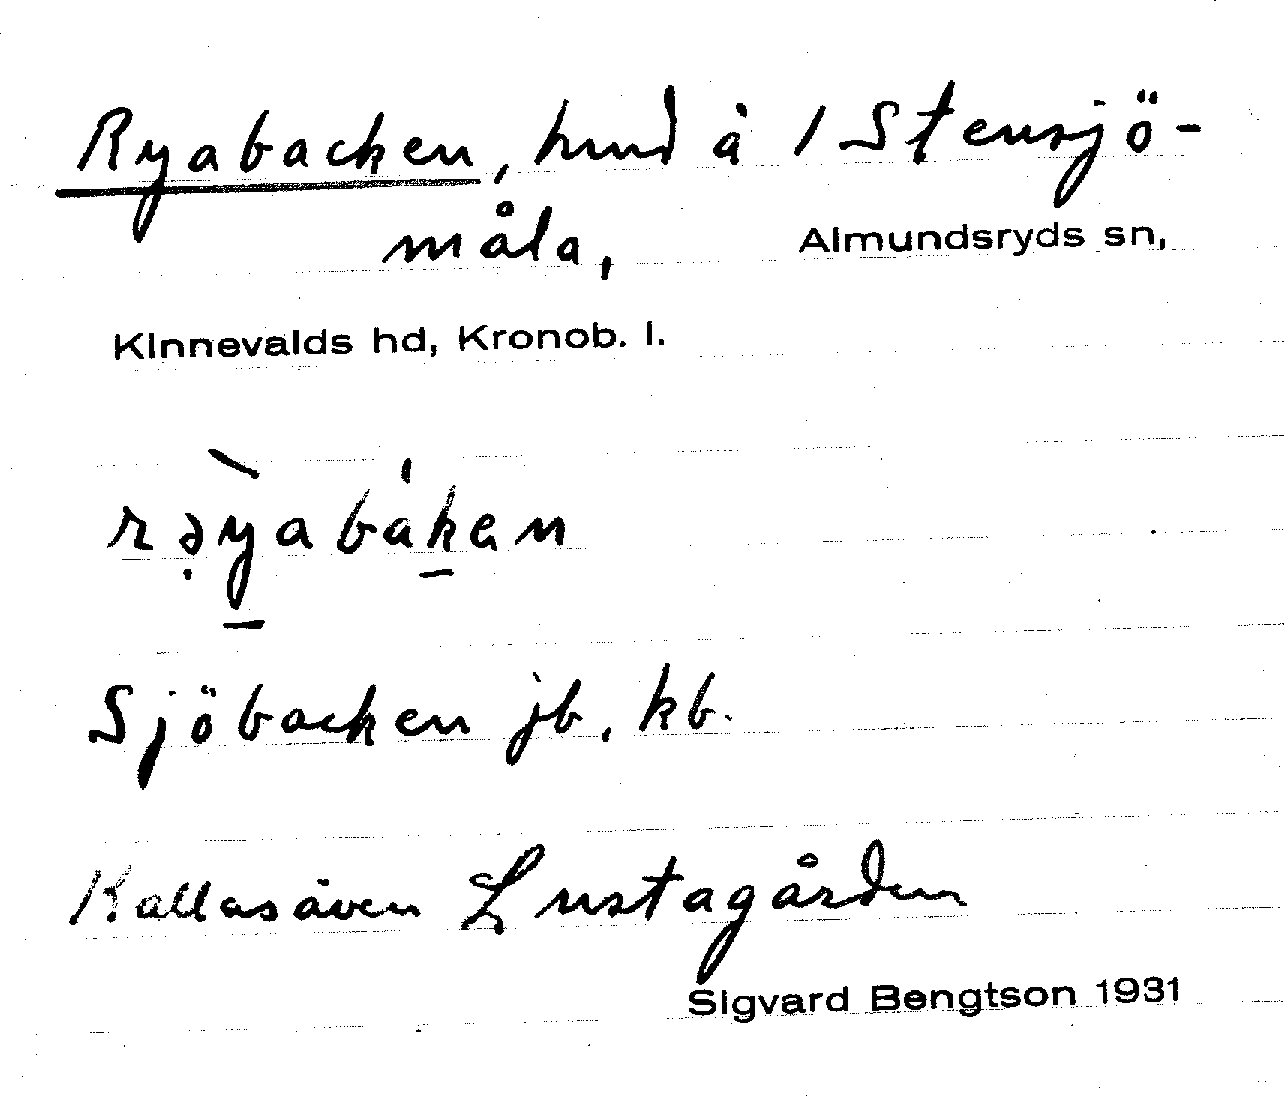 Ryabacken, hmd å 1 Stensjö-
måla, Almundsryds sn,
Kinnevalds hd, Kronob. l.
rə̣ỳ̱abáḵen
Sjöbacken jb, kb.
Kallas även Lustagården
Sigvard Bengtson 1931